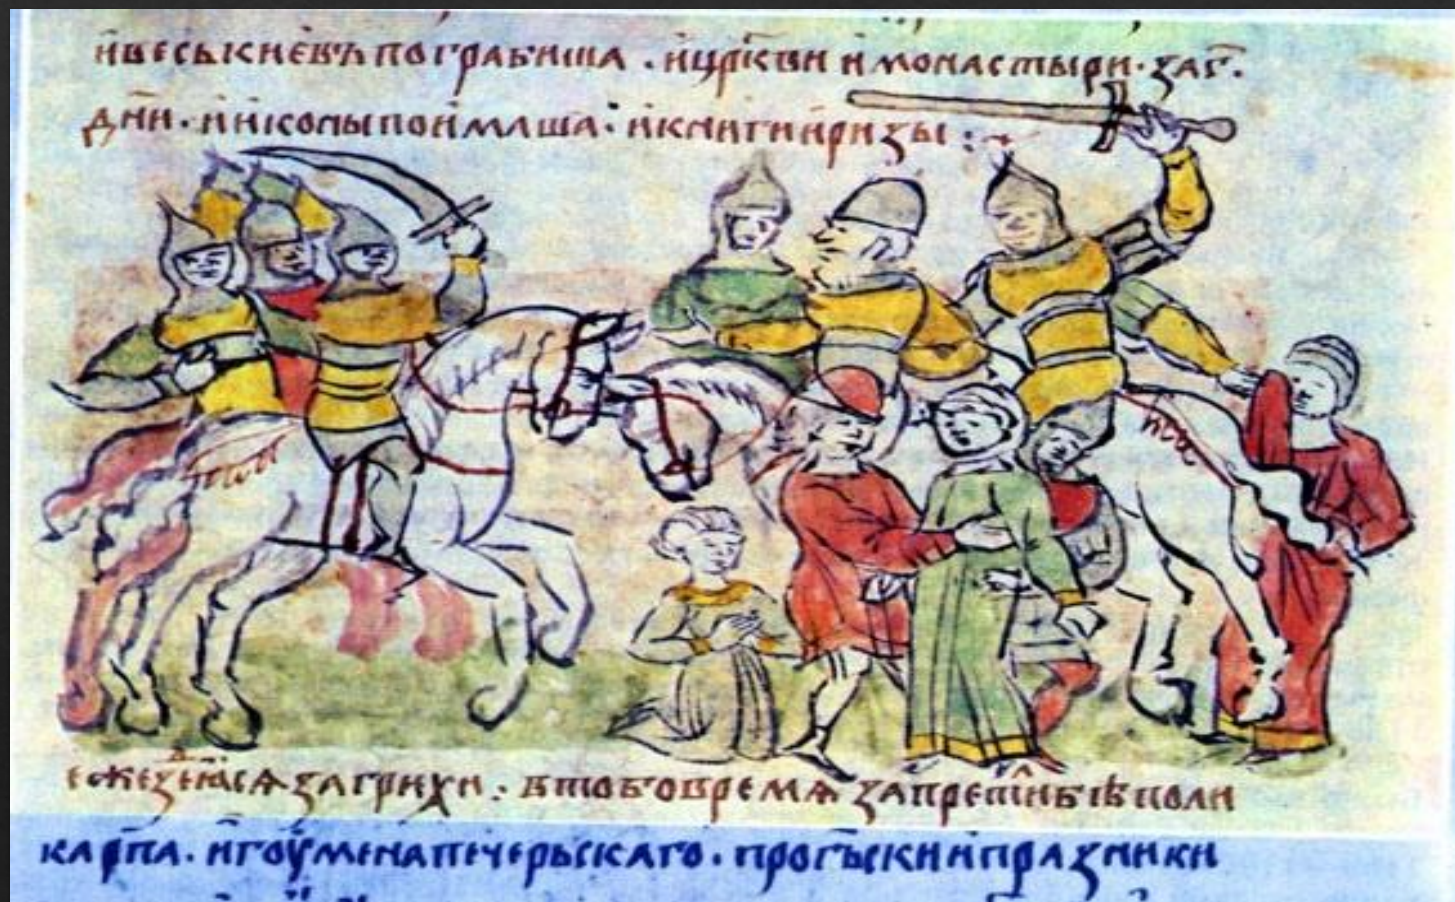 и весь киевъ пограбиша · и цр҃кви и монастыри · за г҃ ·
дн҃и · и иконы поимаша · и книги и ризы :·
еже здеꙗсѧ за грихи · в то бо время запретилъ бѣ поли
карпа · игоумена печерьскаго · про гс҃ьскиꙗ празники